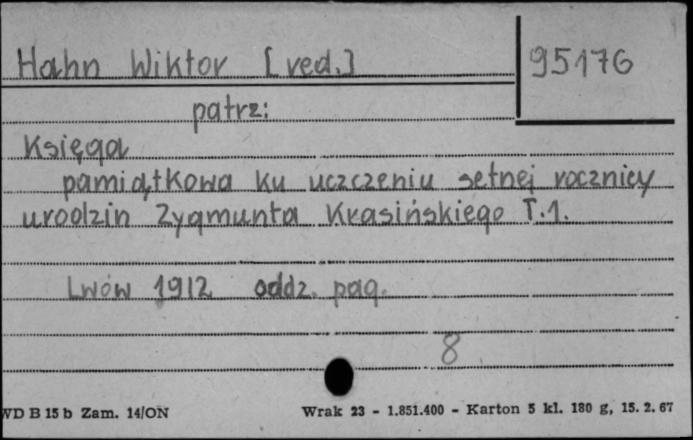 Hahn Wiktor [red.]
95176
patrz:
Księga
pamiątkowa ku uczczeniu setnej rocznicy
urodzin Zygmunta Krasińskiego T.1.
Lwów 1912 oddz. pag.
8
WD B 15 b Zam. 14/ON
Wrak 23 - 1.851.400 - Karton 5 kl. 180 g, 15. 2. 67